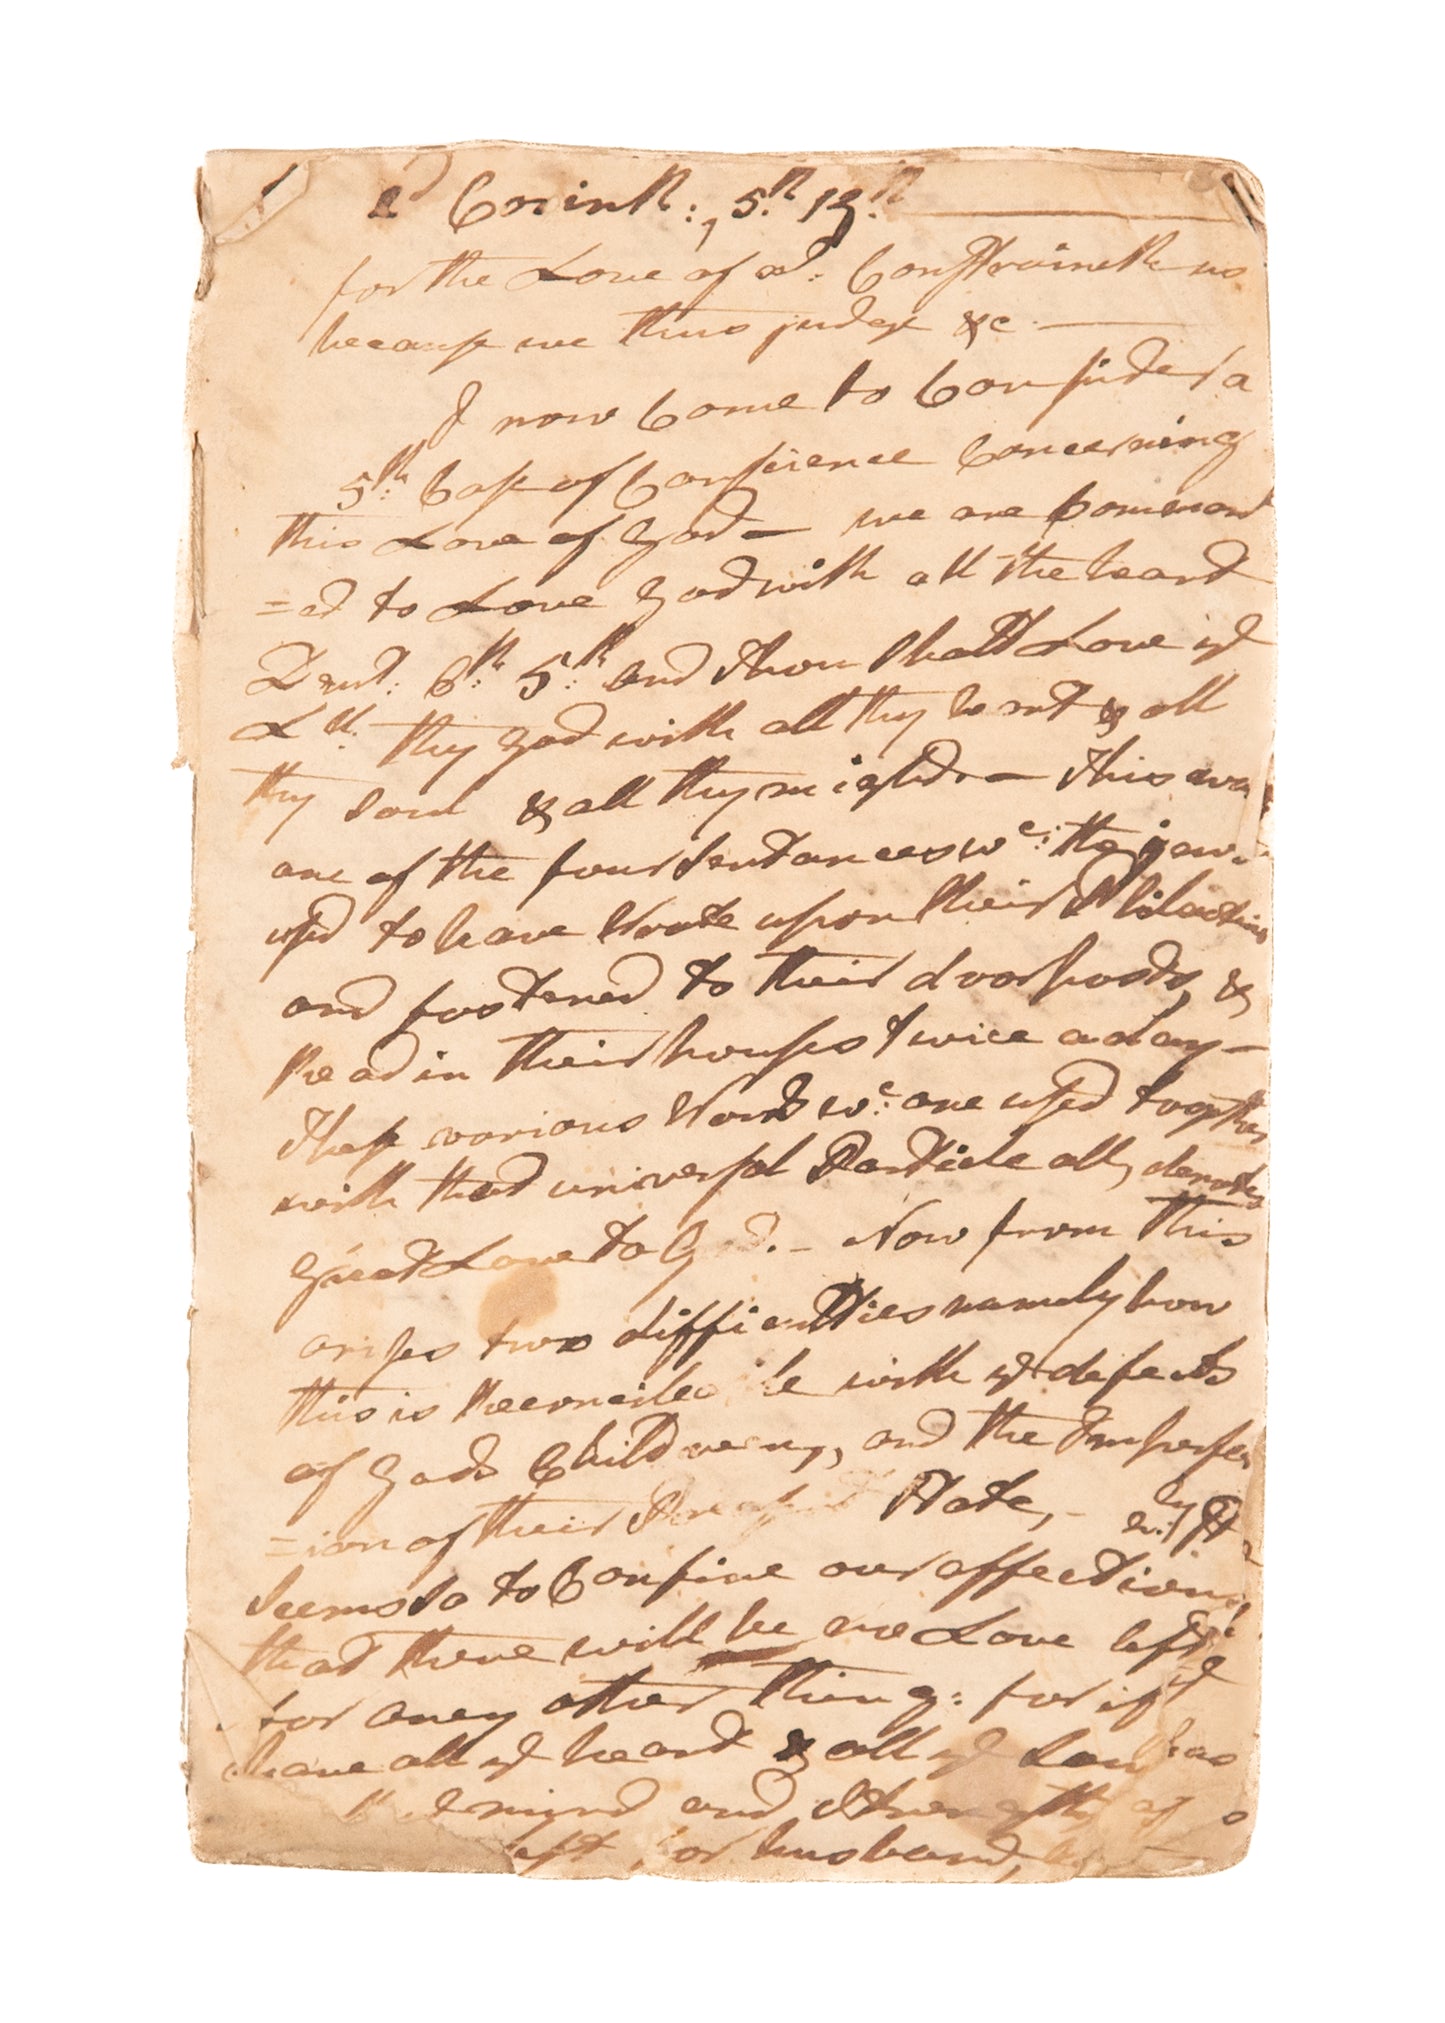 2d Corinth:, 5.th 13.th
for the Love of xt: Constraineth us
because we thus judge &c.
I now Come to Consider a
5th: Case of Consience Concerning
this Love of God — we are Commend
=ed to Love God with all the heart
Deut: 6th: 5th: and thou shalt Love ye
Ld: thy God with all thy heart & all
thy soul & all thy might. — This was
one of the four sentances wc: the jews
used to have Wrote upon their Philactiries
and fastened to their doorposts, &
Read in their houses twice a day —
These various Words wc: are used together
with that universal Particle all, denotes
Great Love to G d. — Now from this
arises two difficulties namely how
this is Reconcileable with ye defects
of Gods Children, and the Imperfec
=ion of their Present State, - 2.ly It
seems so to Confine our affections,
that there will be no Love left
for aney other thing: for if ye
have all ye heart & all ye soul has
mind and Strength of
left for husband,